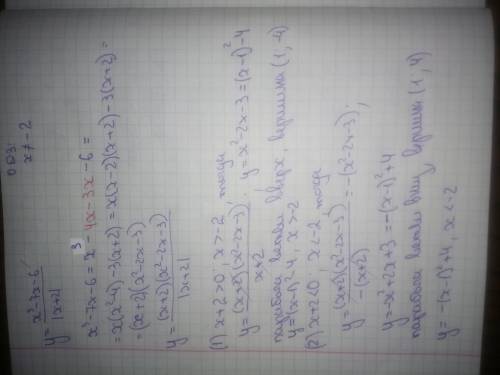 y = x³-7x-6 / |x+2|
ОДЗ:
x ≠ -2
x³-7x-6 = x³ - 4x - 3x - 6 =
= x(x²-4) - 3(x+2) = x(x-2)(x+2) - 3(x+2) =
= (x+2)(x²-2x-3)
y = (x+2)(x²-2x-3) / |x+2|
(1) x+2>0; x>-2, тогда
y = (x+2)(x²-2x-3) / x+2 . y = x²-2x-3 = (x-1)²-4
парабола ветви вверх, вершина (1; -4)
y = (x-1)²-4, x>-2
(2) x+2<0; x<-2 тогда
y = (x+2)(x²-2x-3) / -(x+2) = -(x²-2x-3);
y = -x²+2x+3 = -(x-1)²+4
парабола ветви вниз, вершина (1; 4)
y = -(x-1)²+4, x<-2